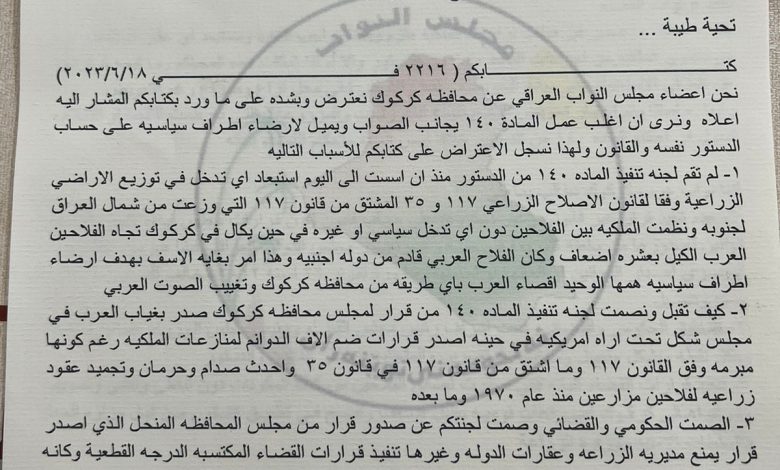 مجلس النواب
تحية طيبة ...
كتـــــابكم ( ٢٢١٦ فـــــي ٢٠٢٣/٦/١٨)
نحن اعضاء مجلس النواب العراقي عن محافظه كركوك نعترض وبشده على ما ورد بكتابكم المشار اليه
اعلاه ونرى ان اغلب عمل المادة ١٤٠ يجانب الصواب ويميل لارضاء اطراف سياسيه على حساب
الدستور نفسه والقانون ولهذا نسجل الاعتراض على كتابكم للأسباب التاليه
١- لم تقم لجنه تنفيذ الماده ١٤٠ من الدستور منذ ان اسست الى اليوم استبعاد اي تدخل في توزيع الاراضي
الزراعية وفقا لقانون الاصلاح الزراعي ١١٧ و ٣٥ المشتق من قانون ١١٧ التي وزعت من شمال العراق
لجنوبه ونظمت الملكيه بين الفلاحين دون اي تدخل سياسي او غيره في حين يكال في كركوك تجاه الفلاحين
العرب الكيل بعشره اضعاف وكان الفلاح العربي قادم من دوله اجنبيه وهذا امر بغايه الاسف بهدف ارضاء
اطراف سياسيه همها الوحيد اقصاء العرب باي طريقه من محافظه كركوك وتغييب الصوت العربي
٢- كيف تقبل ونصمت لجنه تنفيذ الماده ١٤٠ من قرار لمجلس محافظه كركوك صدر بغياب العرب في
مجلس شكل تحت اراه امريكيه في حينه اصدر قرارات ضم الاف الدوانم لمنازعات الملكيه رغم كونها
مبرمه وفق القانون ١١٧ وما اشتق من قانون ١١٧ في قانون ٣٥ واحدث صدام وحرمان وتجميد عقود
زراعيه لفلاحين مزارعين منذ عام ١٩٧٠ وما بعده
٣- الصمت الحكومي والقضائي وصمت لجنتكم عن صدور قرار من مجلس المحافظه المنحل الذي اصدر
قرار يمنع مديريه الزراعه وعقارات الدوله وغيرها تنفيذ قرارات القضاء المكتسبه الدرجه القطعية وكانه